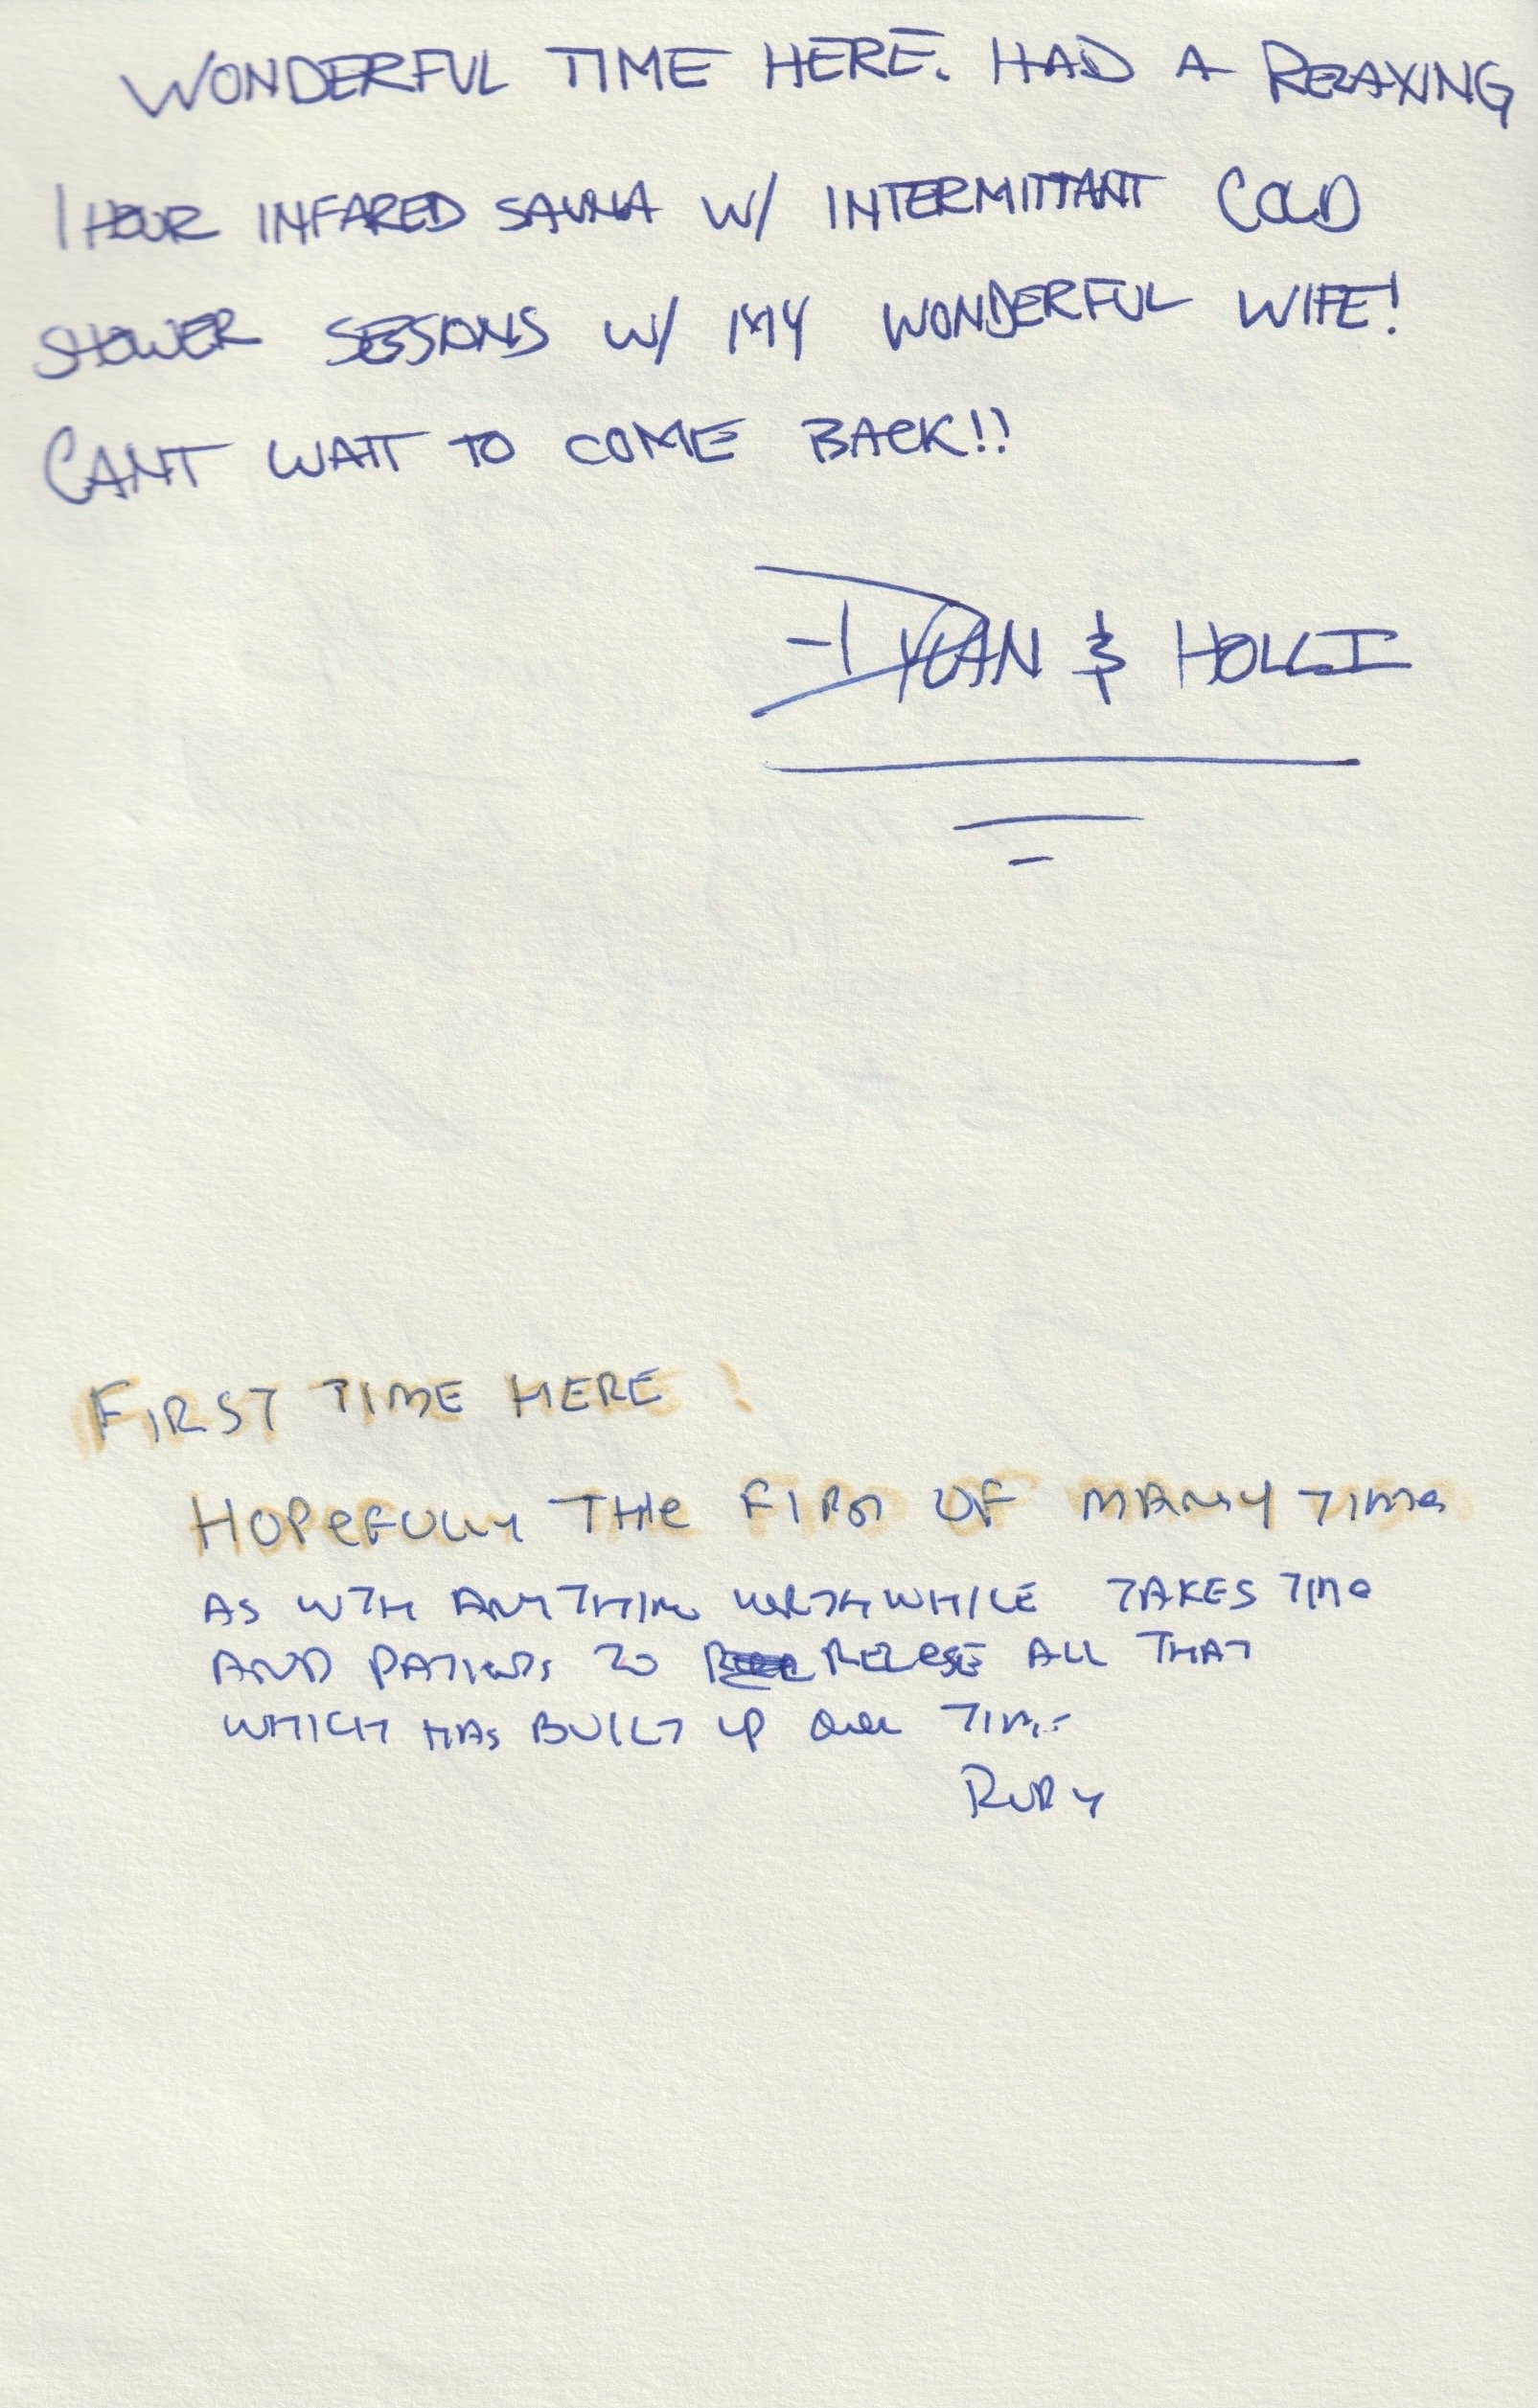 WONDERFUL TIME HERE. HAD A RELAXING
1 HOUR INFARED SAUNA W/ INTERMITTANT COLD
SHOWER SESSIONS W/ MY WONDERFUL WIFE!
CANT WAIT TO COME BACK!!
- DYLAN & HOLLI
FIRST TIME HERE!
HOPEFULLY THE FIRST OF MANY TIMES
AS WITH ANYTHING WORTHWHILE TAKES TIME
AND TO RELEASE ALL THAT
WHICH HAS BUILT UP OVER TIME
RUDY